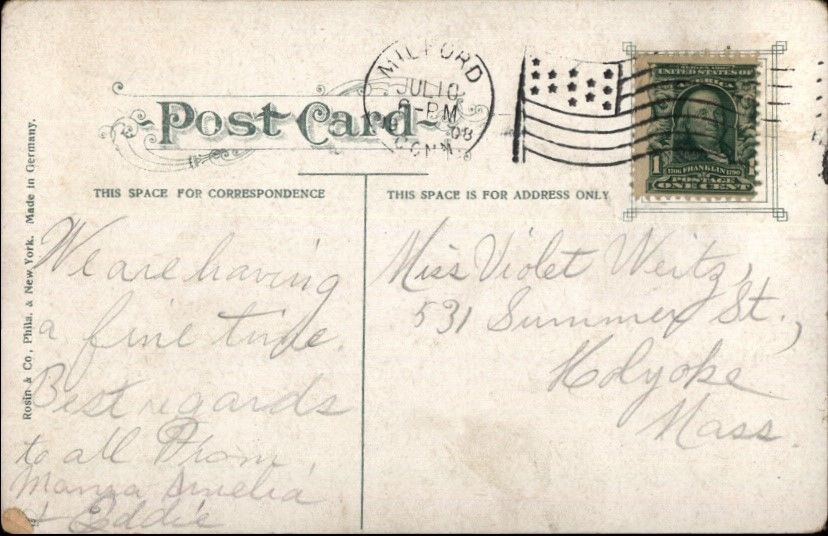 Post Card
THIS SPACE FOR CORRESPONDENCE
THIS SPACE IS FOR ADDRESS ONLY
MILFORD
JUL 10
6-PM
'08
CONN.
UNITED STATES OF
1
1706 FRANKLIN 1790
POSTAGE
ONE CENT
Rosin & Co., Phila. & New York. Made in Germany.
We are having
a fine time.
Best regards
to all From
Mama Amelia
& Eddie
Miss Violet Weitz,
531 Summer St.,
Holyoke
Mass.